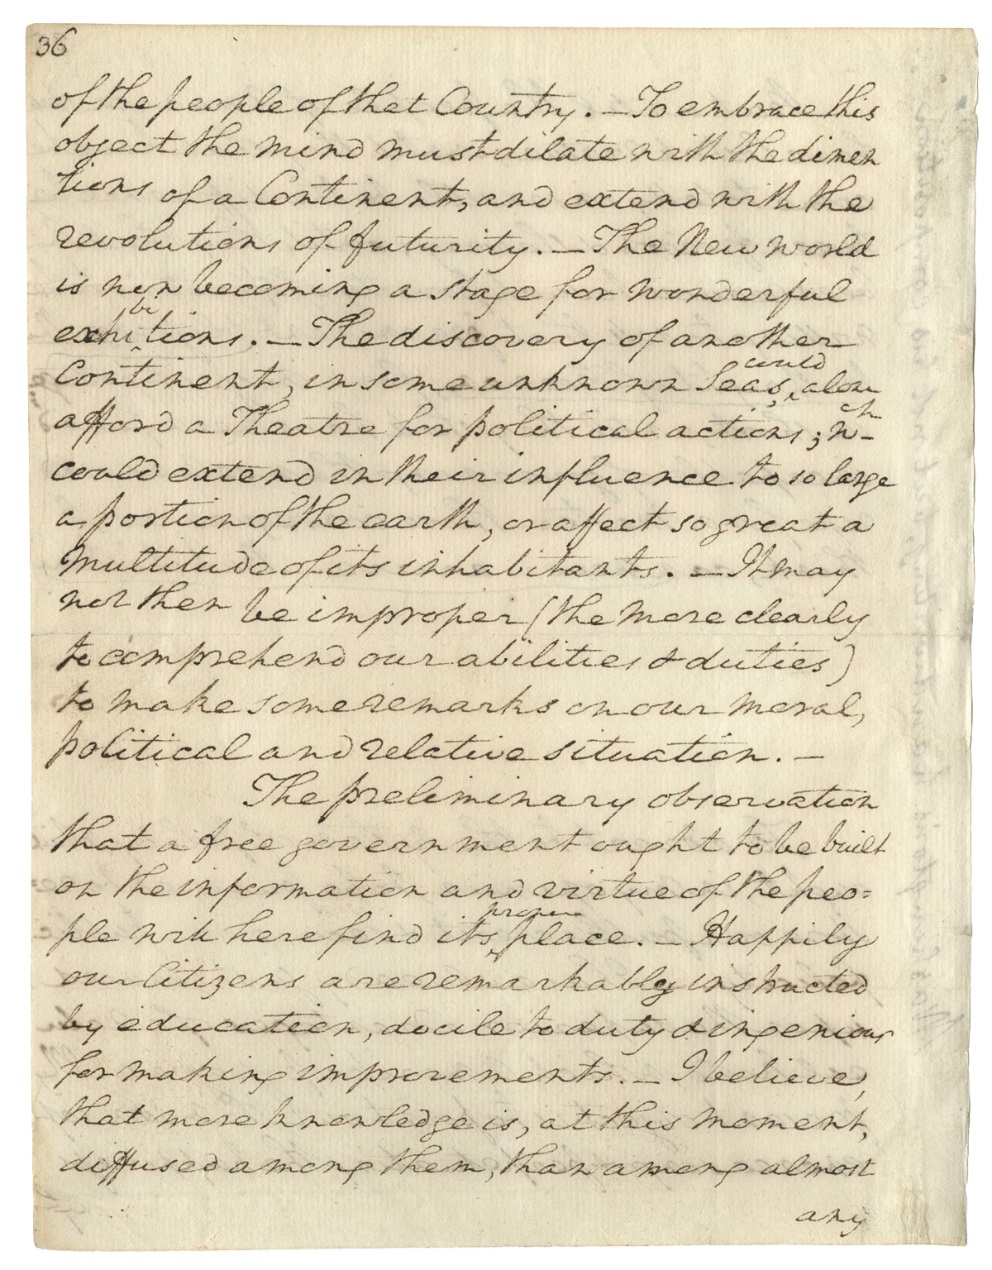 36
of the people of that Country. — To embrace this
object the mind must dilate with the dimen
tions of a Continent, and extend with the
revolutions of futurity. — The New world
is now becoming a stage for wonderful
exhibitions. — The discovery of another
Continent, in some unknown Seas, could alone
afford a Theatre for political actions; wch
could extend in their influence to so large
a portion of the earth, or affect so great a
Multitude of its inhabitants. — It may
not then be improper (the more clearly
to comprehend our abilities & duties)
to make some remarks on our moral,
political and relative situation. —
The preliminary observation
that a free government ought to be built
on the information and virtue of the peo=
ple will here find its proper place. — Happily
our Citizens are remarkably instructed
by education, docile to duty & ingenious
for making improvements. — I believe,
that more knowledge is, at this moment,
diffused among them, than among almost
any